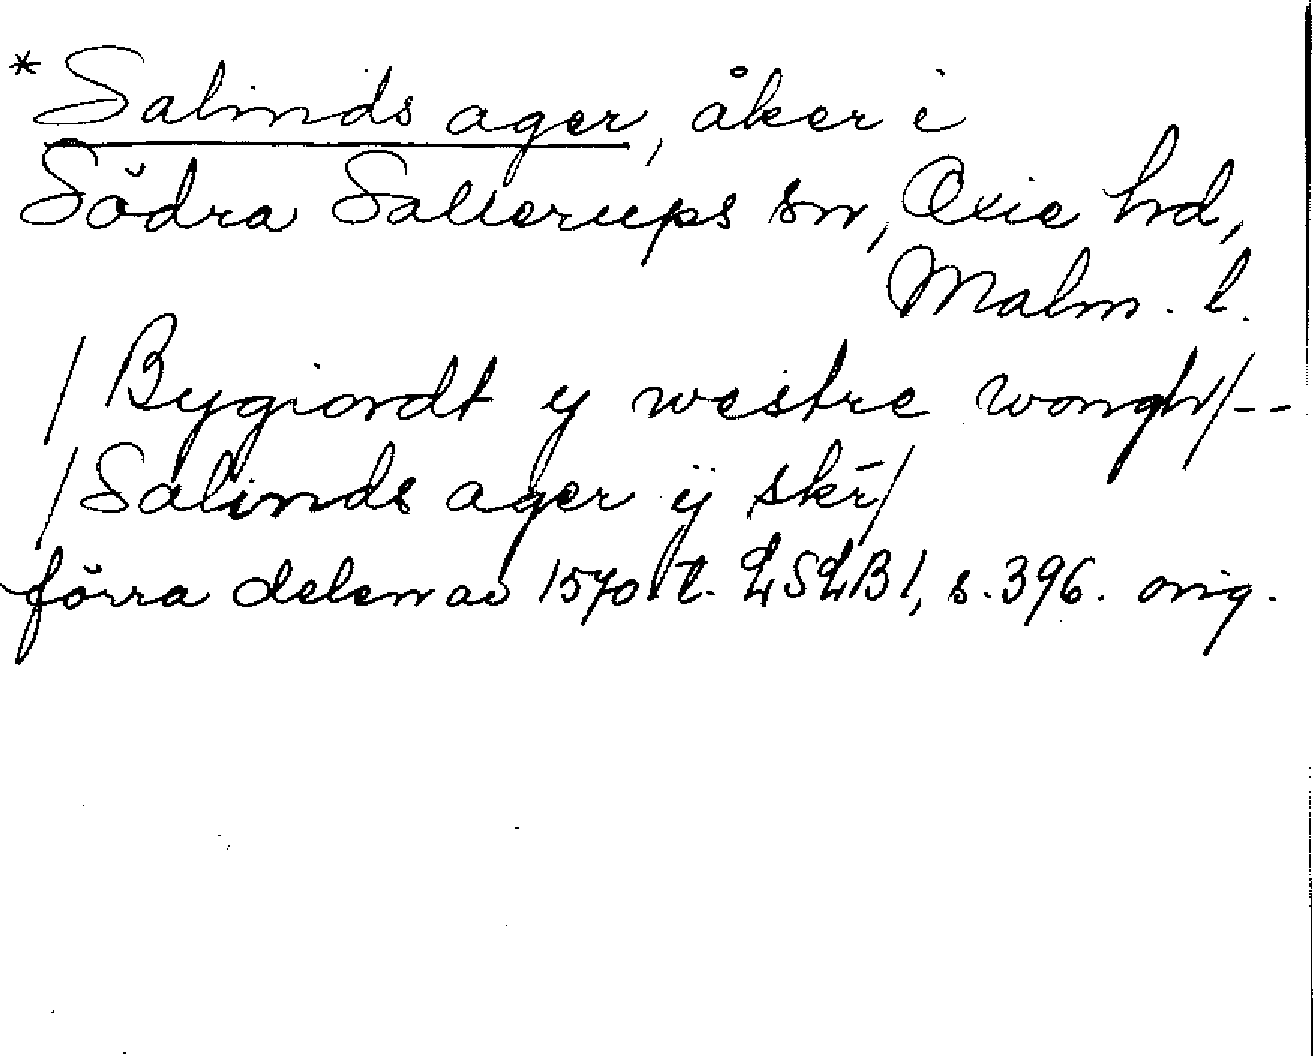 * Salinds ager, åker i
Södra Sallerups sn, Oxie hd,
Malm. l.
/ Bygiordt y westre wongh/--
/ Salinds ager ÿ skr̄/
förra delen av 1570 t. LSLB1, s. 396. orig.